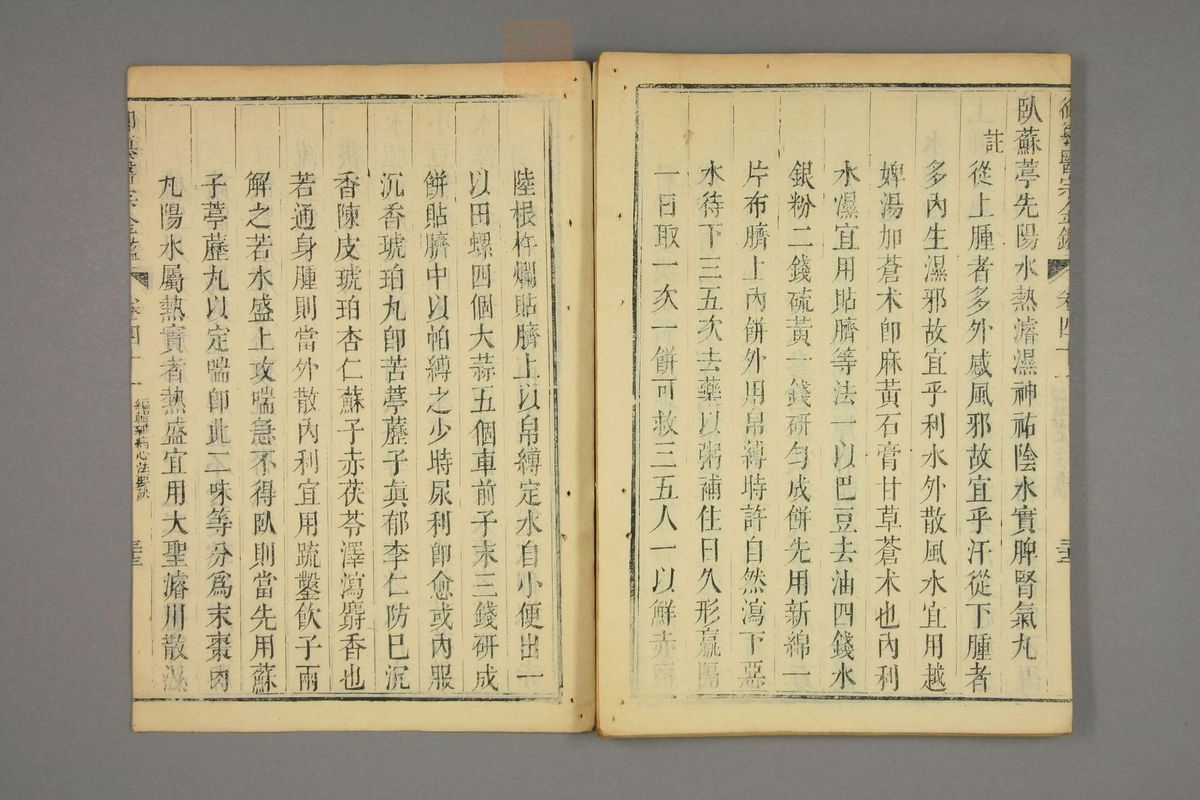 御纂醫宗金鑑 卷四十一
臥蘇葶先陽水熱濬濕神祐陰水實脾腎氣丸
註從上腫者多外感風邪故宜乎汗從下腫者
多內生濕邪故宜乎利水外散風水宜用越
婢湯加蒼朮卽麻黃石膏甘草蒼朮也內利
水濕宜用貼臍等法一以巴豆去油四錢水
銀粉二錢硫黃一錢研勻成餅先用新綿一
片布臍上內餅外用帛縛時許自然瀉下惡
水待下三五次去藥以粥補住日久形羸隔
一日取一次一餅可救三五人一以鮮赤商
陸根杵爛貼臍上以帛縛定水自小便出一
以田螺四個大蒜五個車前子末三錢研成
餅貼臍中以帕縛之少時尿利卽愈或內服
沉香琥珀丸卽苦葶藶子眞郁李仁防巳沉
香陳皮琥珀杏仁蘇子赤茯苓澤瀉麝香也
若通身腫則當外散內利宜用疏鑿飮子兩
解之若水盛上攻喘急不得臥則當先用蘇
子葶藶丸以定喘卽此二味等分爲末棗肉
丸陽水屬熱實者熱盛宜用大聖濬川散濕
御纂醫宗金鑑 卷四十一 編輯雜病心法要訣